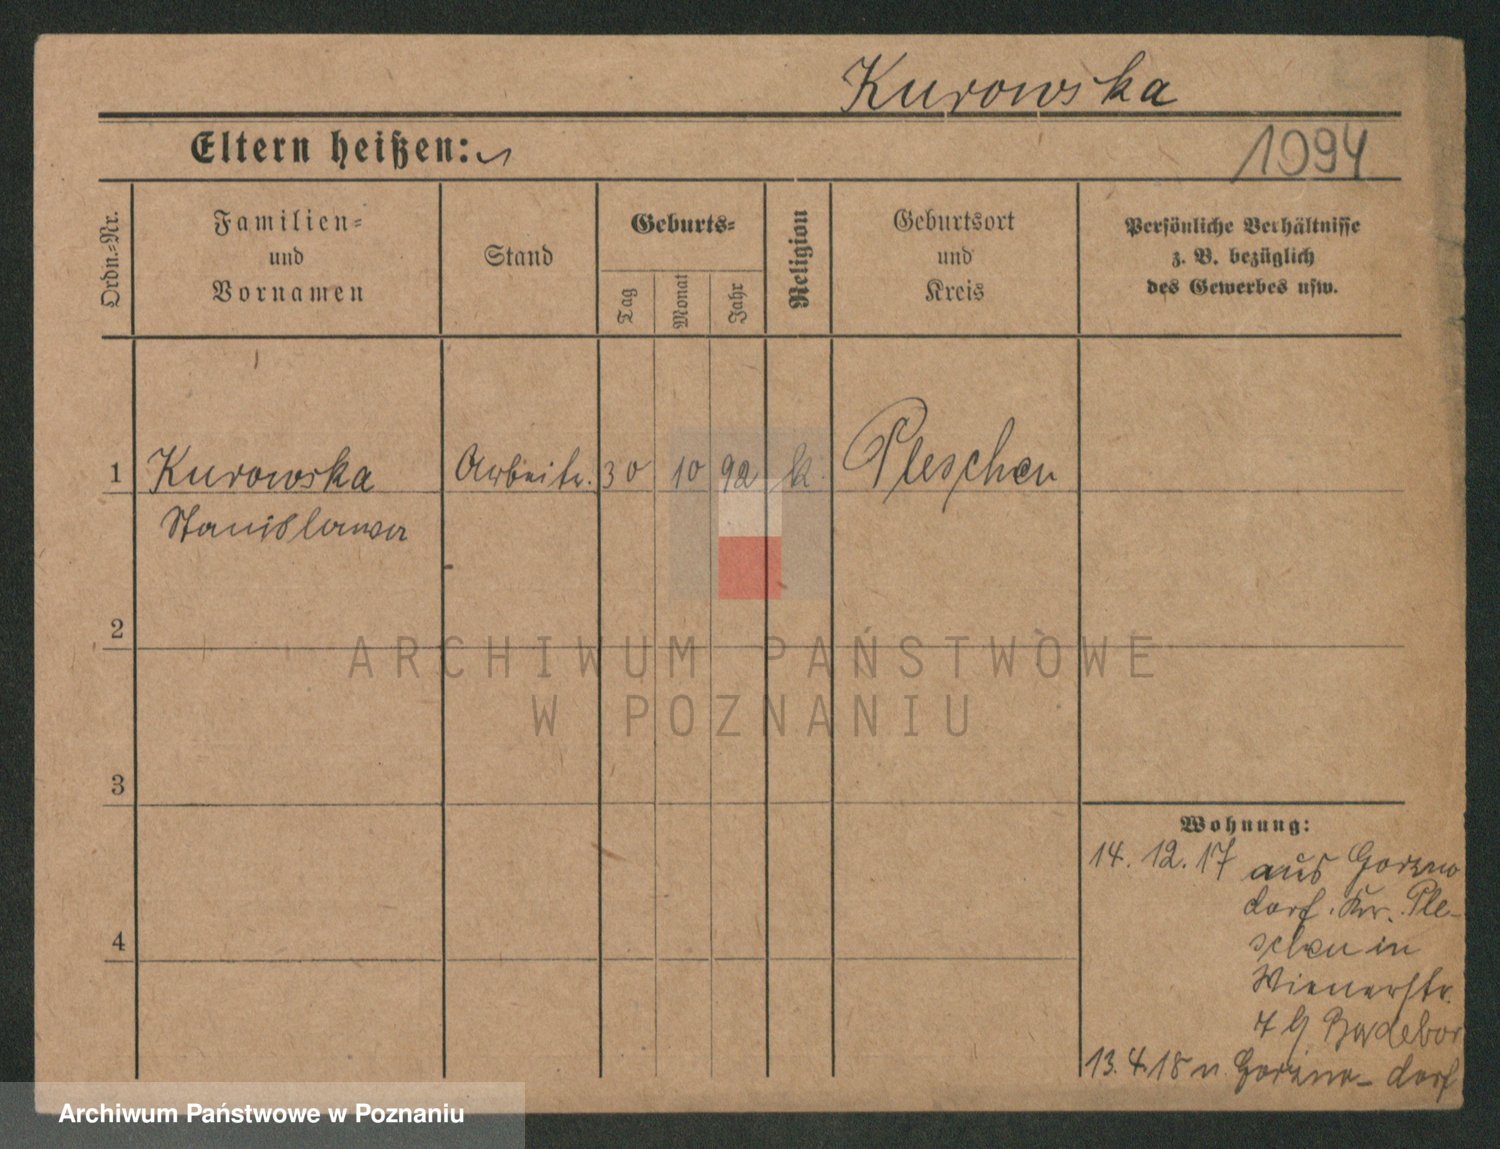 Kurowska
Eltern heißen:
1094
Ordn.=Nr.
Familien=
und
Vornamen
Stand
Geburts=
Tag
Monat
Jahr
Religion
Geburtsort
und
Kreis
Persönliche Verhältnisse
z. B. bezüglich
des Gewerbes usw.
1 Kurowska Arbeitr. 30 10 92 k. Pleschen
Stanislawa
2
ARCHIWUM PAŃSTWOWE
W POZNANIU
3
4
Wohnung:
14. 12. 17 aus Gorzno
dorf. Kr. Ple-
schen in
Wienerstr.
7
13. 4. 18 n. Gorzno-dorf
Archiwum Państwowe w Poznaniu